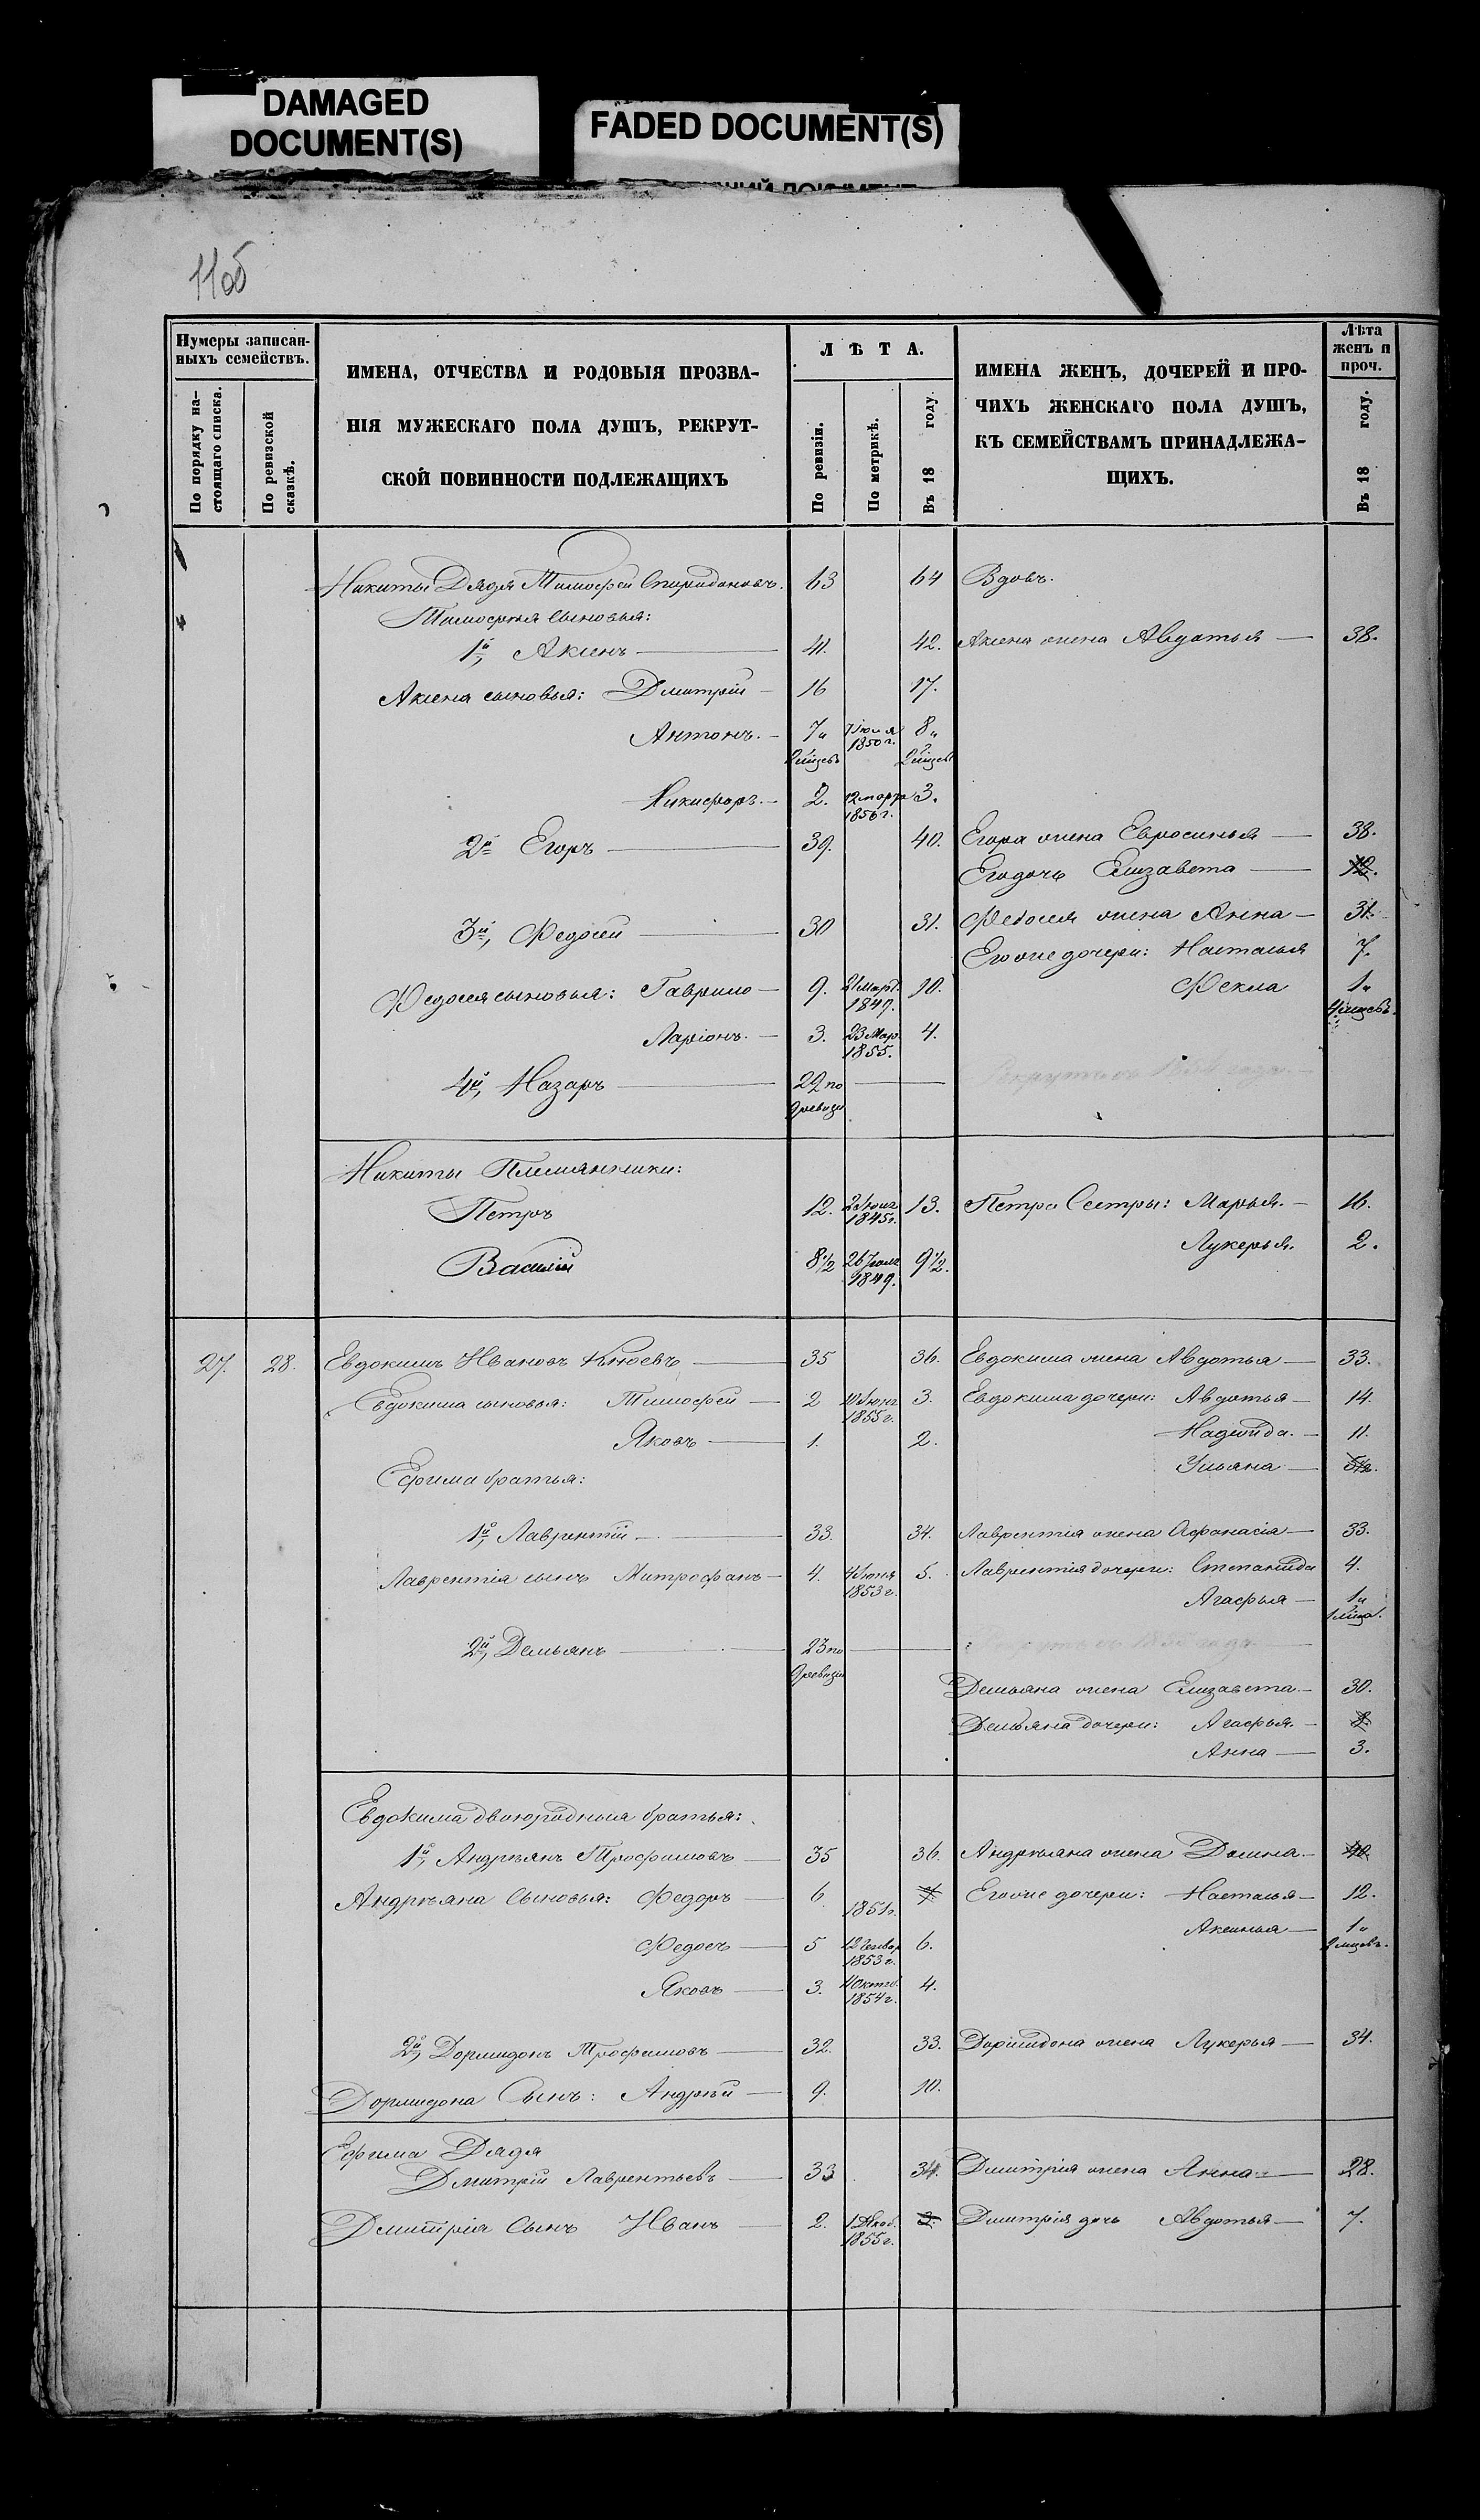 DAMAGED
DOCUMENT(S)
FADED DOCUMENT(S)
11об
Нумеры записан-
ныхъ семействъ.
По порядку на-
стоящаго списка.
По ревизской
сказкѣ.
ИМЕНА, ОТЧЕСТВА И РОДОВЫЯ ПРОЗВА-
НІЯ МУЖЕСКАГО ПОЛА ДУШЪ, РЕКРУТ-
СКОЙ ПОВИННОСТИ ПОДЛЕЖАЩИХЪ
ЛѢТА.
По ревизіи.
По метрикѣ.
Въ 18 году.
ИМЕНА ЖЕНЪ, ДОЧЕРЕЙ И ПРО-
ЧИХЪ ЖЕНСКАГО ПОЛА ДУШЪ,
КЪ СЕМЕЙСТВАМЪ ПРИНАДЛЕЖА-
ЩИХЪ.
Лѣта
женъ и
проч.
Въ 18 году.
Никиты Дядя Тимофей Спиридоновъ. 63 64 Вдовъ.
Тимофея сыновья:
1й, Аксенъ 41. 42. Аксена жена Авдотья 38.
Аксена сыновья: Дмитрій 16 17.
Антонъ. 7 „ 7 Іюля 1850 г. 8 „
2 мѣсев 2 мѣсев
Никифоръ. 2. 12 марта 1856 г. 3.
2й Егоръ 39. 40. Егора жена Евросинья 38.
Его дочь Елизавета
3й, Федосей 30 31. Федосея жена Анна 31.
Его же дочери: Настасья 7.
Федосея сыновья: Гаврило 9. 21 Март. 1849. 10. Фекла 1 „
4 мѣсевъ.
Ларіонъ. 3. 23 Мар. 1855. 4.
4й, Назаръ 22 по
9 ревизи
Никиты Племянники:
Петръ 12. 1845 г. 13. Петра Сестры: Марья. 16.
Лукерья. 2.
Василій 8½ 26 1849. 9½.
27. 28. Евдокимъ Ивановъ 35 36. Евдокима жена Авдотья 33.
Евдокима сыновья: Тимофей 2 10 Іюня 1855 г. 3. Евдокима дочери: Авдотья 14.
Яковъ 1. 2. Надежда. 11.
Ефима братья: Ульяна
1й, Лаврентій 33. 34. Лаврентія жена Афанасія 33.
Лаврентія сынъ Митрофанъ 4. 4 Іюня 1853 г. 5. Лаврентія дочери: Степанида 4.
Агафья 1 „
2й, Демьянъ 23 по
9 ревизіи
Демьяна жена Елизавета. 30.
Демьяна дочери: Агафья.
Анна 3.
Евдокима двоюродныя братья:
1й, Андреянъ Трофимовъ 35 36. Андреяна жена Домна. 40
Андреяна Сыновья: Федоръ 6 1851 г. 7. Его же дочери: Настасья 12.
Аксинья 1 „
2 мѣсевъ.
Федосъ 5 12 Генвар 1853 г. 6.
Яковъ 3. 11 Октяб. 1854 г. 4.
2й, Дормидонъ Трофимовъ 32. 33. Дормидона жена Лукерья 34.
Дормидона Сынъ: Андрѣй 9. 10.
Ефима Дядя
Дмитрій Лаврентьевъ 33 34. Дмитрія жена Анна 28.
Дмитрія Сынъ Иванъ 2. 1855 г. 3. Дмитрія дочь Авдотья 7.